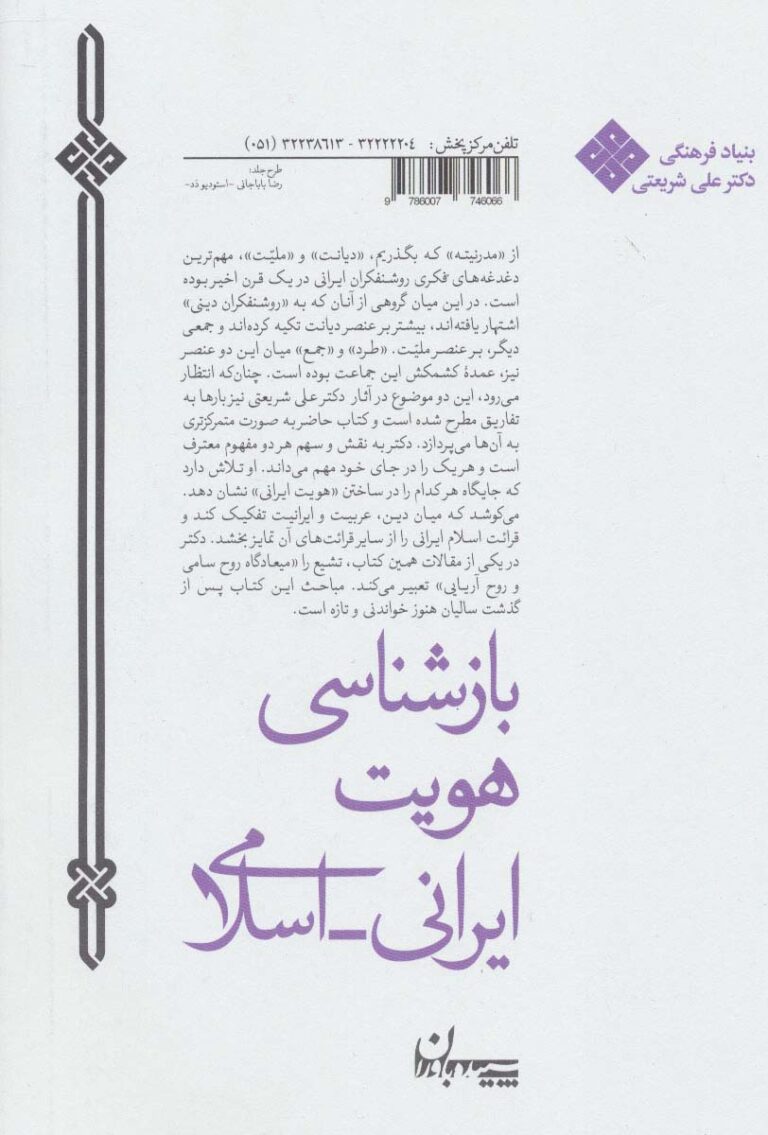 بنیاد فرهنگی
دکتر علی شریعتی
تلفن مرکز پخش: ۳۲۲۲۲۲۰۴ - ۳۲۲۳۸۶۱۳ (۰۵۱)
طرح جلد:
رضا باباجانی -استودیو دَد-
9 786007 746066
از «مدرنیته» که بگذریم، «دیانت» و «ملیّت»، مهم‌ترین
دغدغه‌های فکری روشنفکران ایرانی در یک قرن اخیر بوده
است. در این میان گروهی از آنان که به «روشنفکران دینی»
اشتهار یافته‌اند، بیشتر بر عنصر دیانت تکیه کرده‌اند و جمعی
دیگر، بر عنصر ملیّت. «طرد» و «جمع» میان این دو عنصر
نیز، عمدهٔ کشمکش این جماعت بوده است. چنان‌که انتظار
می‌رود، این دو موضوع در آثار دکتر علی شریعتی نیز بارها به
تفاریق مطرح شده است و کتاب حاضر به صورت متمرکزتری
به آن‌ها می‌پردازد. دکتر به نقش و سهم هر دو مفهوم معترف
است و هر یک را در جای خود مهم می‌داند. او تلاش دارد
که جایگاه هر کدام را در ساختن «هویت ایرانی» نشان دهد.
می‌کوشد که میان دین، عربیت و ایرانیت تفکیک کند و
قرائت اسلام ایرانی را از سایر قرائت‌های آن تمایز بخشد. دکتر
در یکی از مقالات همین کتاب، تشیع را «میعادگاه روح سامی
و روح آریایی» تعبیر می‌کند. مباحث این کتاب پس از
گذشت سالیان هنوز خواندنی و تازه است.
بازشناسی
هویت
ایرانی_اسلامی
سپیده‌باوران